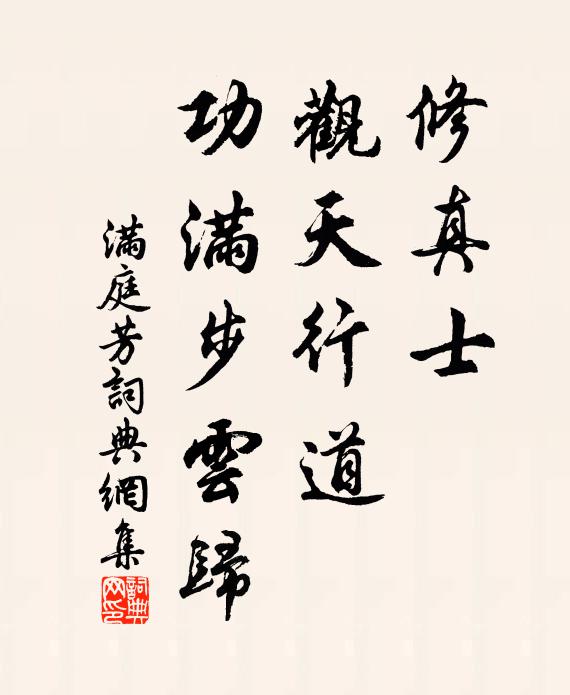 修真士
觀天行道
功滿步雲歸
滿庭芳詞典網集
詞典网印